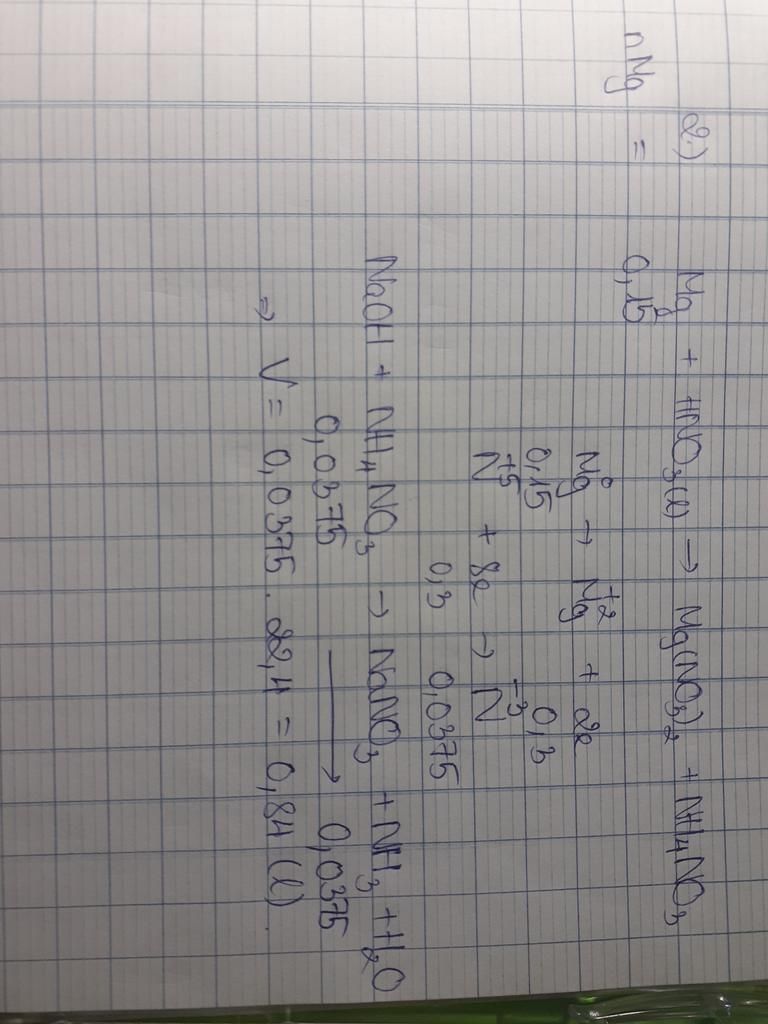 2.) Mg + HNO3(l) → Mg(NO3)2 + NH4NO3
nMg = 0,15
Mg⁰ → Mg⁺² + 2e
0,15 0,3
N⁺⁵ + 8e → N⁻³
0,3 0,0375
NaOH + NH4NO3 → NaNO3 + NH3 + H2O
0,0375 → 0,0375
⇒ V = 0,0375 . 22,4 = 0,84 (l)